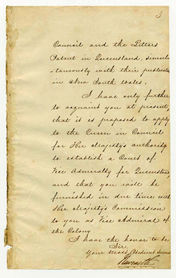 3
Council and the Letters
Patent in Queensland, simul-
-taneously with their publication
in New South Wales.
I have only further
to acquaint you at present,
that it is proposed to apply
to the Queen in Council
for Her Majesty's authority
to establish a Court of
Vice Admiralty for Queensland
and that you will be
furnished in due time with
Her Majesty's Commission
to you as Vice Admiral of
the Colony.
I have the honor to be
Sir
Your most obedient servant
Newcastle